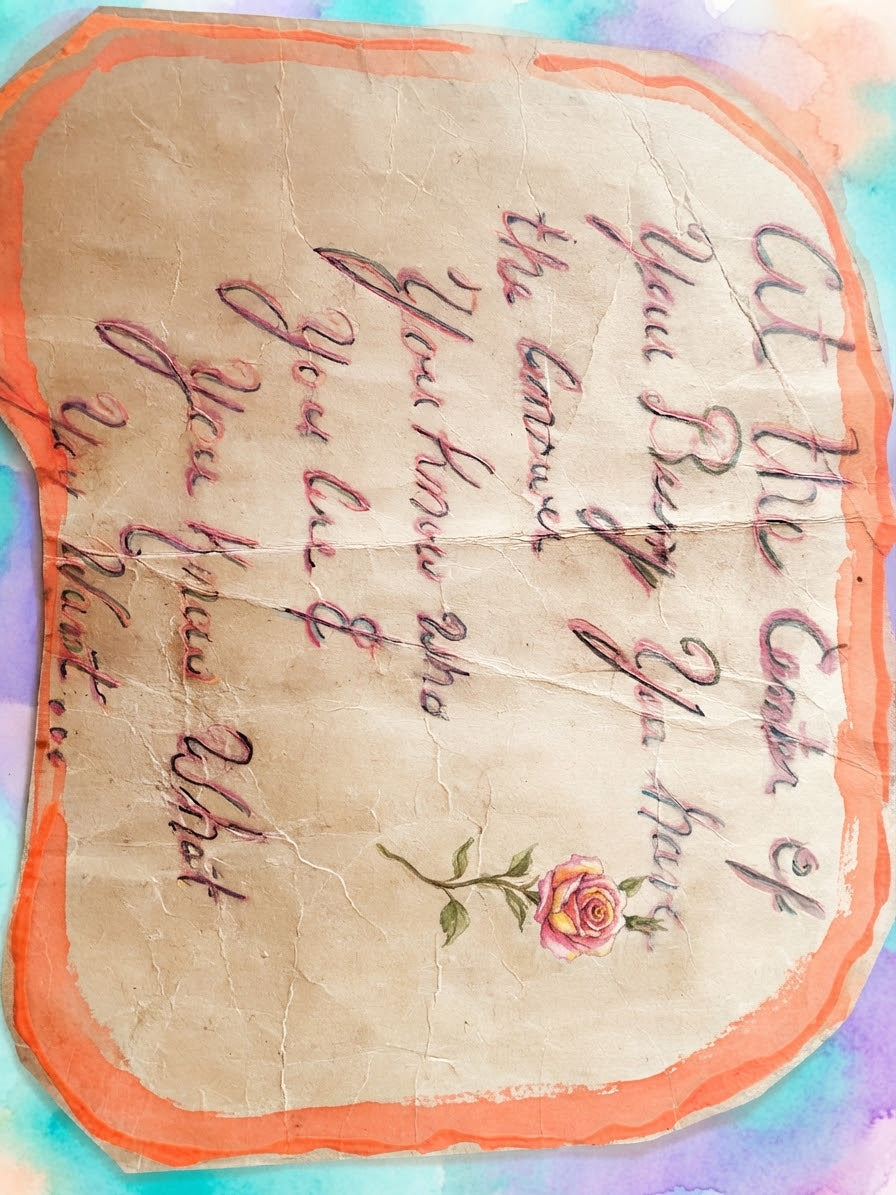 At the Center of
Your Being You have
the answer
You know who
You are &
You know What
You Want...